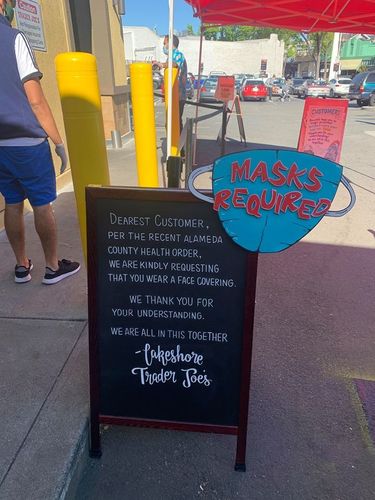 MASKS
REQUIRED
DEAREST CUSTOMER,
PER THE RECENT ALAMEDA
COUNTY HEALTH ORDER,
WE ARE KINDLY REQUESTING
THAT YOU WEAR A FACE COVERING.
WE THANK YOU FOR
YOUR UNDERSTANDING.
WE ARE ALL IN THIS TOGETHER
-Lakeshore
Trader Joe's
CUSTOMER!